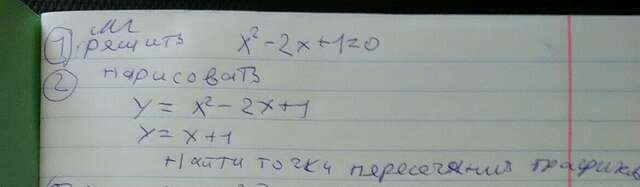 1 решить x² - 2x + 1 = 0
2 нарисовать
y = x² - 2x + 1
y = x + 1
Найти точки пересечения графиков